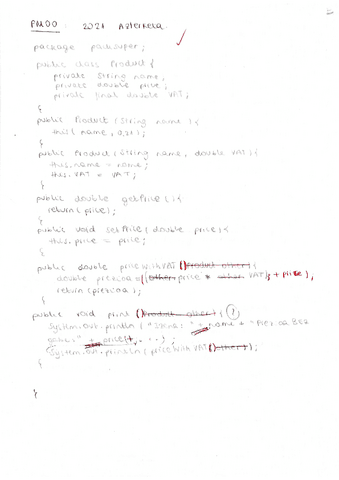 PMOO : 2021 Azterketa.
package packsuper;
public class Product {
private String name;
private double price;
private final double VAT;
{
public Product (String name) {
this( name, 0,21);
}
public Product (String name, double VAT){
this.name = name;
this.VAT = VAT;
}
public double getPrice(){
return(price);
}
public void setPrice( double price){
this.price = price;
}
public double priceWithVAT (Product other) {
double = ((other.price * other VAT) + price),
return( );
}
public void print (Product other) {
System.out.println ( " : " + name + "
" + price + , ...);
System.out.println ( priceWithVAT(other));
{
}